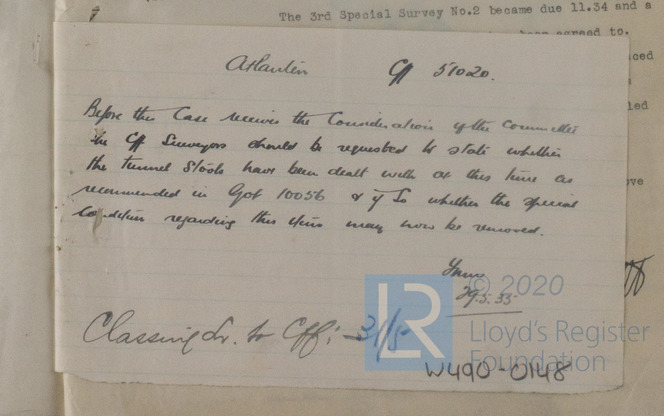 The 3rd Special Survey No.2 became due 11.34 and a
been agreed to.
Cff 51020.
Before this Case receives the Consideration of the Committee
the Cff Surveyors should be requested to state whether
the tunnel Stools have been dealt with at this time as
recommended in Got 10056 & if so whether the special
condition regarding this item may now be removed.
29.5.35
Classing Lr. to Cff: 31/5
LR
© 2020
Lloyd's Register
Foundation
W490-0148